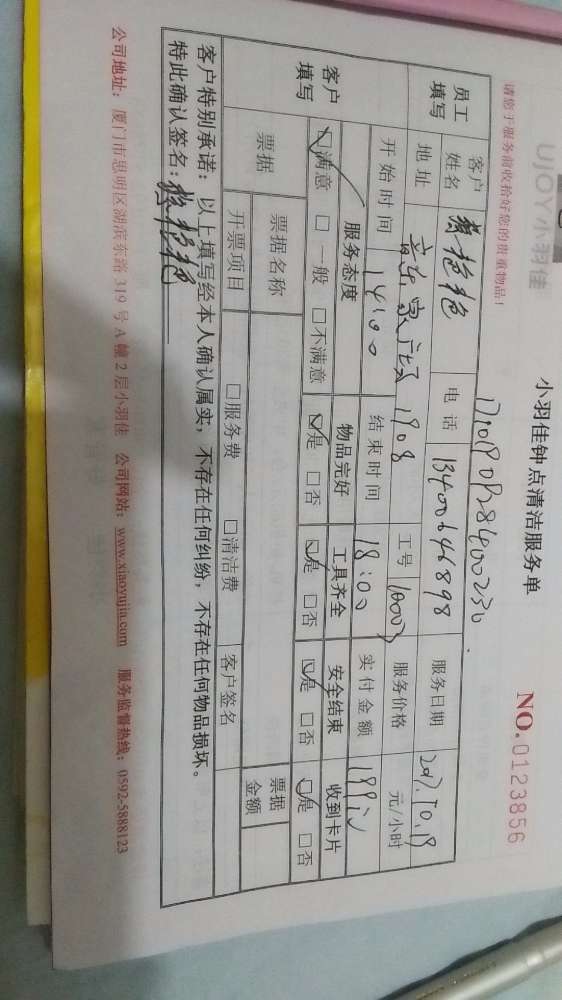 UJOY小羽佳
小羽佳钟点清洁服务单
NO.0123856
请您于服务前收拾好您的贵重物品！
员工填写 客户姓名 艳艳 电话 13400646898 服务日期 2017.10.19
地址 1908 工号 10003 服务价格 元/小时
客户填写 开始时间 14:00 结束时间 18:00 实付金额 199元
服务态度 物品完好 工具齐全 安全结束 收到卡片
☑满意 □一般 □不满意 ☑是 □否 ☑是 □否 ☑是 □否 ☑是 □否
票据 票据名称 客户签名 票据金额
开票项目 □服务费 □清洁费
客户特别承诺：以上填写经本人确认属实，不存在任何纠纷，不存在任何物品损坏。
特此确认签名：艳艳
公司地址：厦门市思明区湖滨东路 319 号 A 幢 2 层小羽佳 公司网站：www.xiaoyujia.com 服务监督热线：0592-5888123